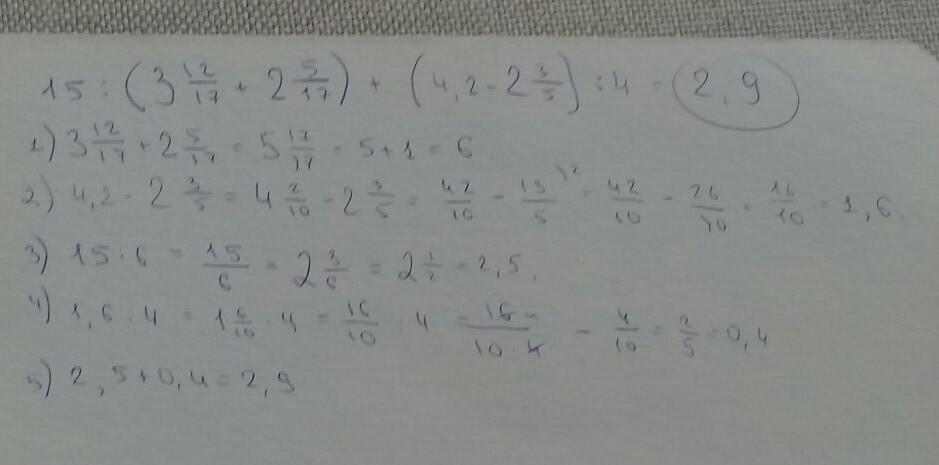 15 : (3 12/17 + 2 5/17) + (4,2 - 2 3/5) : 4 = 2,9
1) 3 12/17 + 2 5/17 = 5 17/17 = 5 + 1 = 6
2) 4,2 - 2 3/5 = 4 2/10 - 2 3/5 = 42/10 - 13/5 = 42/10 - 26/10 = 16/10 = 1,6
3) 15 : 6 = 15/6 = 2 3/6 = 2 1/2 = 2,5.
4) 1,6 : 4 = 1 6/10 : 4 = 16/10 : 4 = 16/10·4 = 4/10 = 2/5 = 0,4
5) 2,5 + 0,4 = 2,9